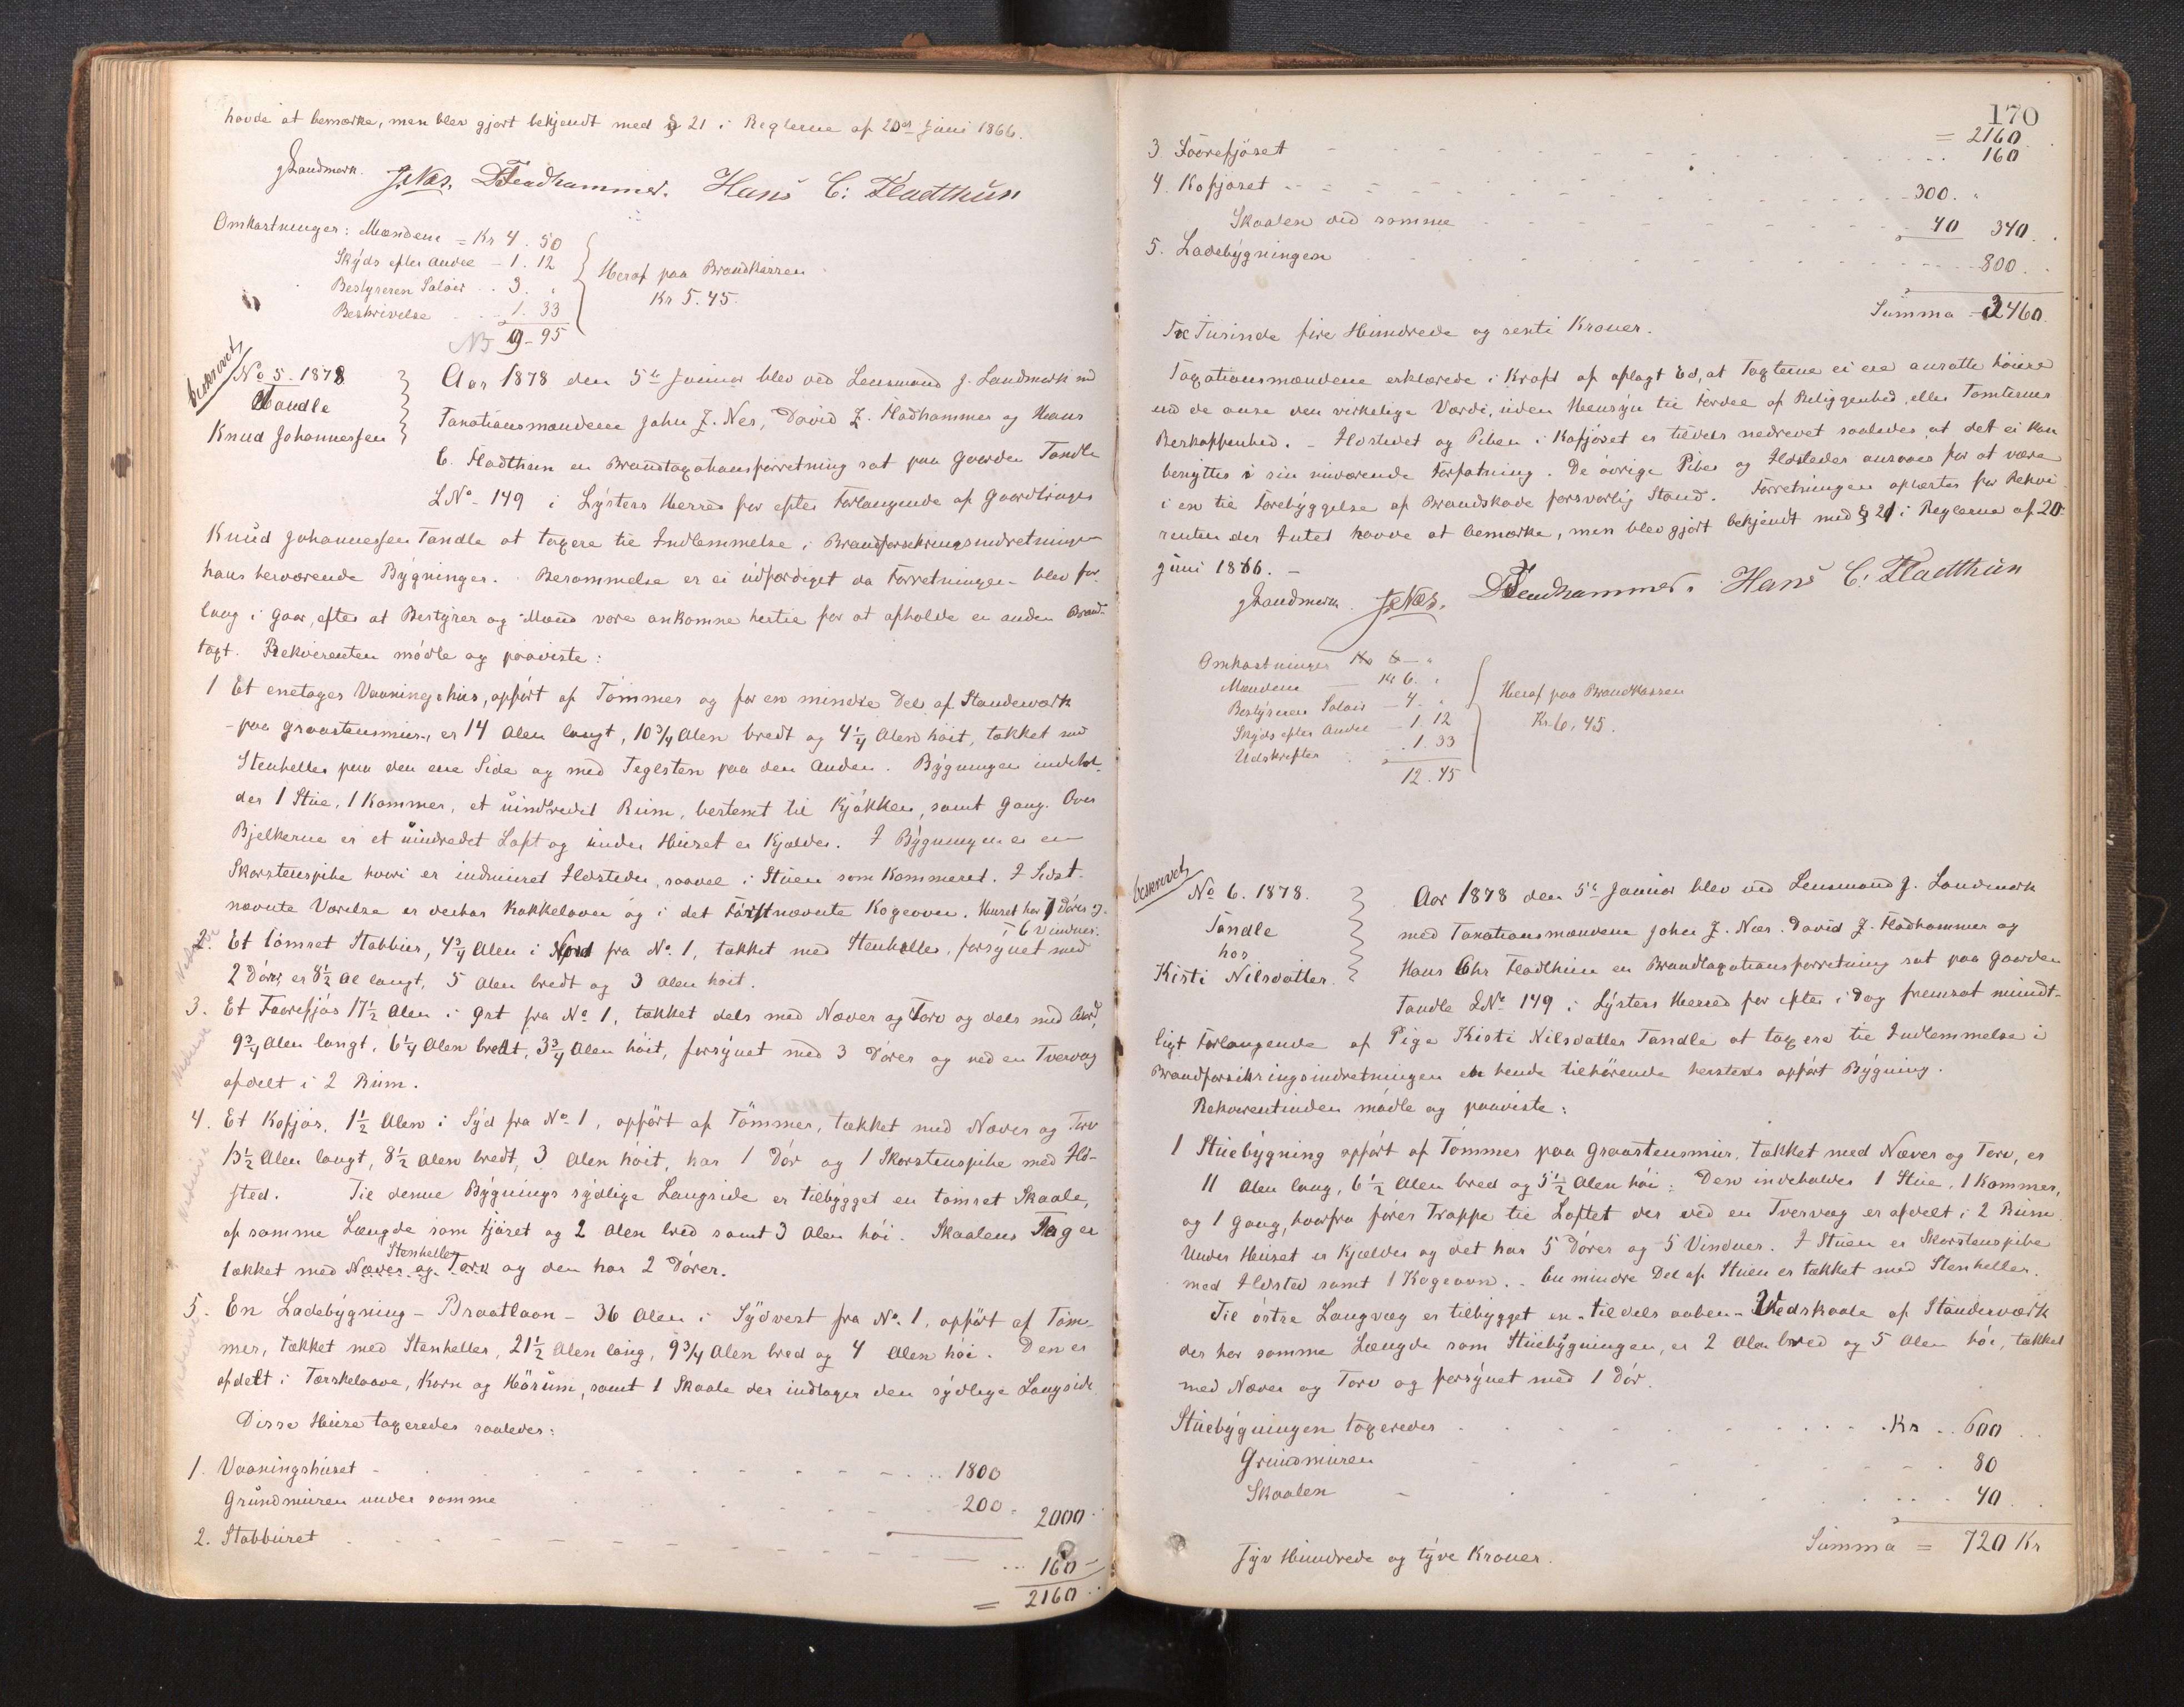 havde at bemærke, men blev gjort bekjendt med § 21 i Reglerne af 20de Juni 1866.
J Landmark. J. Nes. D Fladhammer. Hans C: Fladthun
Omkostninger: Mændene = Kr 4. 50
Skyds efter Andre - 1. 12
Bestyreren Salær .. 3. "
Beskrivelse .. - 1. 33
NB 9-95
Heraf paa Brandkassen
Kr 5.45.
beskrevet
No 5 - 1878
Tandle
Knud Johannessen
Aar 1878 den 5te Januar blev ved Lensmand J. Landmark med
Taxationsmændene John J. Nes, David J. Fladhammer og Hans
C. Fladthun en Brandtaxationsforretning sat paa Gaarden Tandle
LNo - 149 i Lysters Herred for efter Forlangende af Gaardbruger
Knud Johannessen Tandle at taxere til Indlemmelse i Brandforsikringsindretningen
hans herværende Bygninger. Berammelse er ei udfærdiget da Forretningen blev for-
langt i Gaar, efter at Bestyrer og Mænd vare ankomne hertil for at afholde en anden Brand-
taxt. Rekvirenten mødte og paaviste:
1 Et enetages Vaaningshus, opført af Tømmer og for en mindre Del af Standerværk
- paa Graastensmur, er 14 Alen langt, 10 3/4 Alen bredt og 4 1/4 Alen høit, tækket med
Stenheller paa den ene Side og med Teglsten paa den Anden. Bygningen indehol-
der 1 Stue, 1 Kammer, et uindredet Rum, bestemt til Kjøkken, samt Gang. Over
Bjelkerne er et uindredet Loft og under Huset er Kjælder. I Bygningen er en
Skorstenspibe hvori er indmuret Ildsteder, saavel i Stuen som Kammeret. I Sidst-
nævnte Værelse er derhos Kakkelovn og i det Førstnævnte Kogeovn. Huset har 7 Døre og
6 Vinduer.
2. Et tømret Stabbur, 4 3/4 Alen i Nord fra No. 1, tækket med Stenheller, forsynet med
2 Døre, er 8 1/2 Al langt, 5 Alen bredt og 3 Alen høit.
3. Et Faarefjøs 17 1/2 Alen i Øst fra No 1, tækket dels med Næver og Torv og dels med Bord,
9 3/4 Alen langt, 6 1/4 Alen bredt, 3 3/4 Alen høit, forsynet med 3 Døre og ved en Tvervæg
afdelt i 2 Rum.
4. Et Kofjøs, 1 1/2 Alen i Syd fra No 1, opført af Tømmer, tækket med Næver og Torv
13 1/2 Alen langt, 8 1/2 Alen bredt, 3 Alen høit, har 1 Dør og 1 Skorstenspibe med Ild-
sted. Til denne Bygnings sydlige Langside er tilbygget en tømret Skaale,
af samme Længde som Fjøset og 2 Alen bred samt 3 Alen høi. Skaalens Tag er
Stenheller
tækket med Næver og Torv og den har 2 Døre.
5. En Ladebygning - Braatlaen - 36 Alen i Sydvest fra No. 1, opført af Tøm-
mer, tækket med Stenheller, 21 1/2 Alen lang, 9 3/4 Alen bred og 4 Alen høi. Den er
afdelt i Tærskelaave, Korn og Hørum, samt 1 Skaale der indtager den sydlige Langside.
Disse Huse taxeredes saaledes:
1. Vaaningshuset - 1800
Grundmuren under samme 200. 2000.
2. Stabburet 160 -
= 2160
170
= 2160
3 Faarefjøset 160
4. Kofjøset 300. "
Skaalen ved samme 40 340.
5. Ladebygningen 800.
Summa - 3460.
Tre Tusinde fire Hundrede og sexti Kroner.
Taxationsmændene erklærede i Kraft af aflagt Ed, at Taxterne ei ere ansatte høiere
end de anse den virkelige Værdi, uden Hensyn til Fordel af Beliggenhed, eller Tomternes
Beskaffenhed. - Ildstedet og Piben i Kofjøset er tildels nedrevet saaledes at det ei kan
benyttes i sin nuværende Forfatning. De øvrige Piber og Ildsteder ansaaes for at være
i en til Forebyggelse af Brandskade forsvarlig Stand. Forretningen oplæstes for Rekvi-
renten der Intet havde at bemærke, men blev gjort bekjendt med § 21 i Reglerne af 20.
Juni 1866. -
J Landmark. J. Nes. D Fladhammer. Hans C: Fladthun
Omkostninger Kr 6 - "
Mændene Kr 6. "
Bestyreren Salær - 4. "
Skyds efter Andre - 1. 12
Udskrifter . 1. 33
12. 45
Heraf paa Brandkassen
Kr. 6, 45.
beskrevet
No 6. 1878.
Tandle
hos
Kisti Nilsdatter.
Aar 1878 den 5te Januar blev ved Lensmand J. Landmark
med Taxationsmændene John J. Nes. David J. Fladhammer og
Hans Chr Fladthun en Brandtaxationsforretning sat paa Gaarden
Tandle LNo 149 i Lysters Herred for efter i Dag fremsat mundt-
ligt Forlangende af Pige Kisti Nilsdatter Tandle at taxere til Indlemmelse i
Brandforsikringsindretningen en hende tilhørende hersteds opført Bygning.
Rekvirentinden mødte og paaviste:
1 Stuebygning opført af Tømmer paa Graastensmur, tækket med Næver og Torv, er
11 Alen lang, 6 1/2 Alen bred og 5 1/2 Alen høi: Den indeholder 1 Stue, 1 Kammer,
og 1 Gang, hvorfra fører Trappe til Loftet der ved en Tvervæg er afdelt i 2 Rum.
Under Huset er Kjælder og det har 5 Døre og 5 Vinduer. I Stuen er Skorstenspibe
med Ildsted samt 1 Kogeovn. . En mindre Del af Stuen er tækket med Stenheller.
Til østre Langvæg er tilbygget en - tildels aaben - Vedskaale af Standerværk
der har samme Længde som Stuebygningen, er 2 Alen bred og 5 Alen høi, tækket
med Næver og Torv og forsynet med 1 Dør.
Stuebygningen taxeredes Kr .. 600
Grundmuren 80
Skaalen - 40.
Summa = 720 Kr
Syv Hundrede og tyve Kroner.